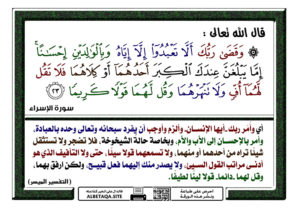 قال الله تعالى :
۞ وَقَضَىٰ رَبُّكَ أَلَّا تَعْبُدُوٓا۟ إِلَّآ إِيَّاهُ وَبِٱلْوَٰلِدَيْنِ إِحْسَٰنًا ۚ
إِمَّا يَبْلُغَنَّ عِندَكَ ٱلْكِبَرَ أَحَدُهُمَآ أَوْ كِلَاهُمَا فَلَا تَقُل
لَّهُمَآ أُفٍّ وَلَا تَنْهَرْهُمَا وَقُل لَّهُمَا قَوْلًا كَرِيمًا ٢٣
سورة الإسراء
أي وأمر ربك -أيها الإنسان- وألزم وأوجب أن يفرد سبحانه وتعالى وحده بالعبادة،
وأمر بالإحسان إلى الأب والأم، وبخاصة حالة الشيخوخة، فلا تضجر ولا تستثقل
شيئًا تراه من أحدهما أو منهما، ولا تسمعهما قولا سيئًا، حتى ولا التأفيف الذي هو
أدنى مراتب القول السيئ، ولا يصدر منك إليهما فعل قبيح، ولكن ارفق بهما،
وقل لهما -دائما- قولا لينا لطيفا.
[التفسير الميسر]
ALBETAQA.SITE